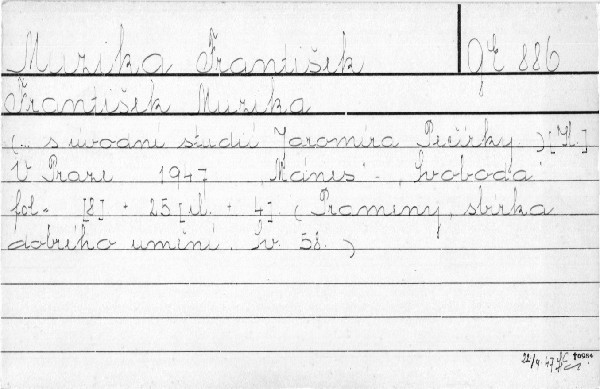 Muzika František
gE 886
František Muzika
(... s úvodní studií Jaromíra Pečírky.) [Il.]
V Praze 1947 "Mánes" - "Svoboda"
fol- [8] + 25 [il. + 4]. (Prameny, sbírka
dobrého umění. Sv. 58.)
22/9.47